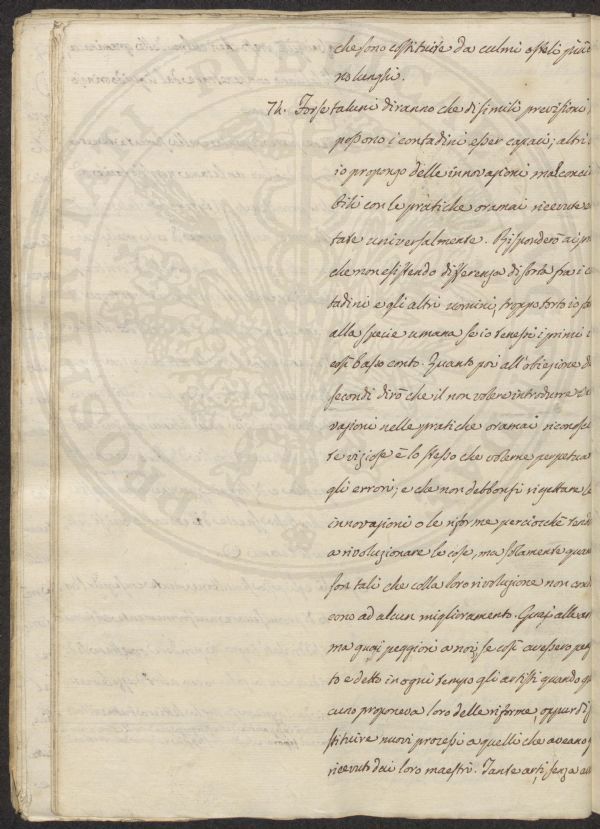 che sono costituite da culmi o steli più o
no lunghi.
74. Forse taluni diranno che di simili previsioni
possono i contadini esser capaci; altri
io propongo delle innovazioni mal conci
bili con le pratiche oramai ricevute e
tate universalmente. Risponderò ai pri
che non esistendo differenza di sorta fra i con
tadini e gli altri uomini, troppo torto io fa
alla specie umana se io tenessi i primi i
così basso conto. Quanto poi all'obiezione de
secondi dirò che il non volere introdurre in
vazioni nelle pratiche oramai riconosciu
te viziose è lo stesso che volerne perpetua
gli errori; e che non debbonsi rigettare le
innovazioni o le riforme perciocchè tend
a rivoluzionare le cose, ma solamente quan
son tali che colla loro rivoluzione non cond
cono ad alcun miglioramento. Guai alle ar
ma guai peggiori a noi, se così avessero pen
to e detto in ogni tempo gli artisti quando qu
cuno proponeva loro delle riforme, oppur di
stituire nuovi processi a quelli che aveano
ricevuto dai loro maestri. Tante arti senza